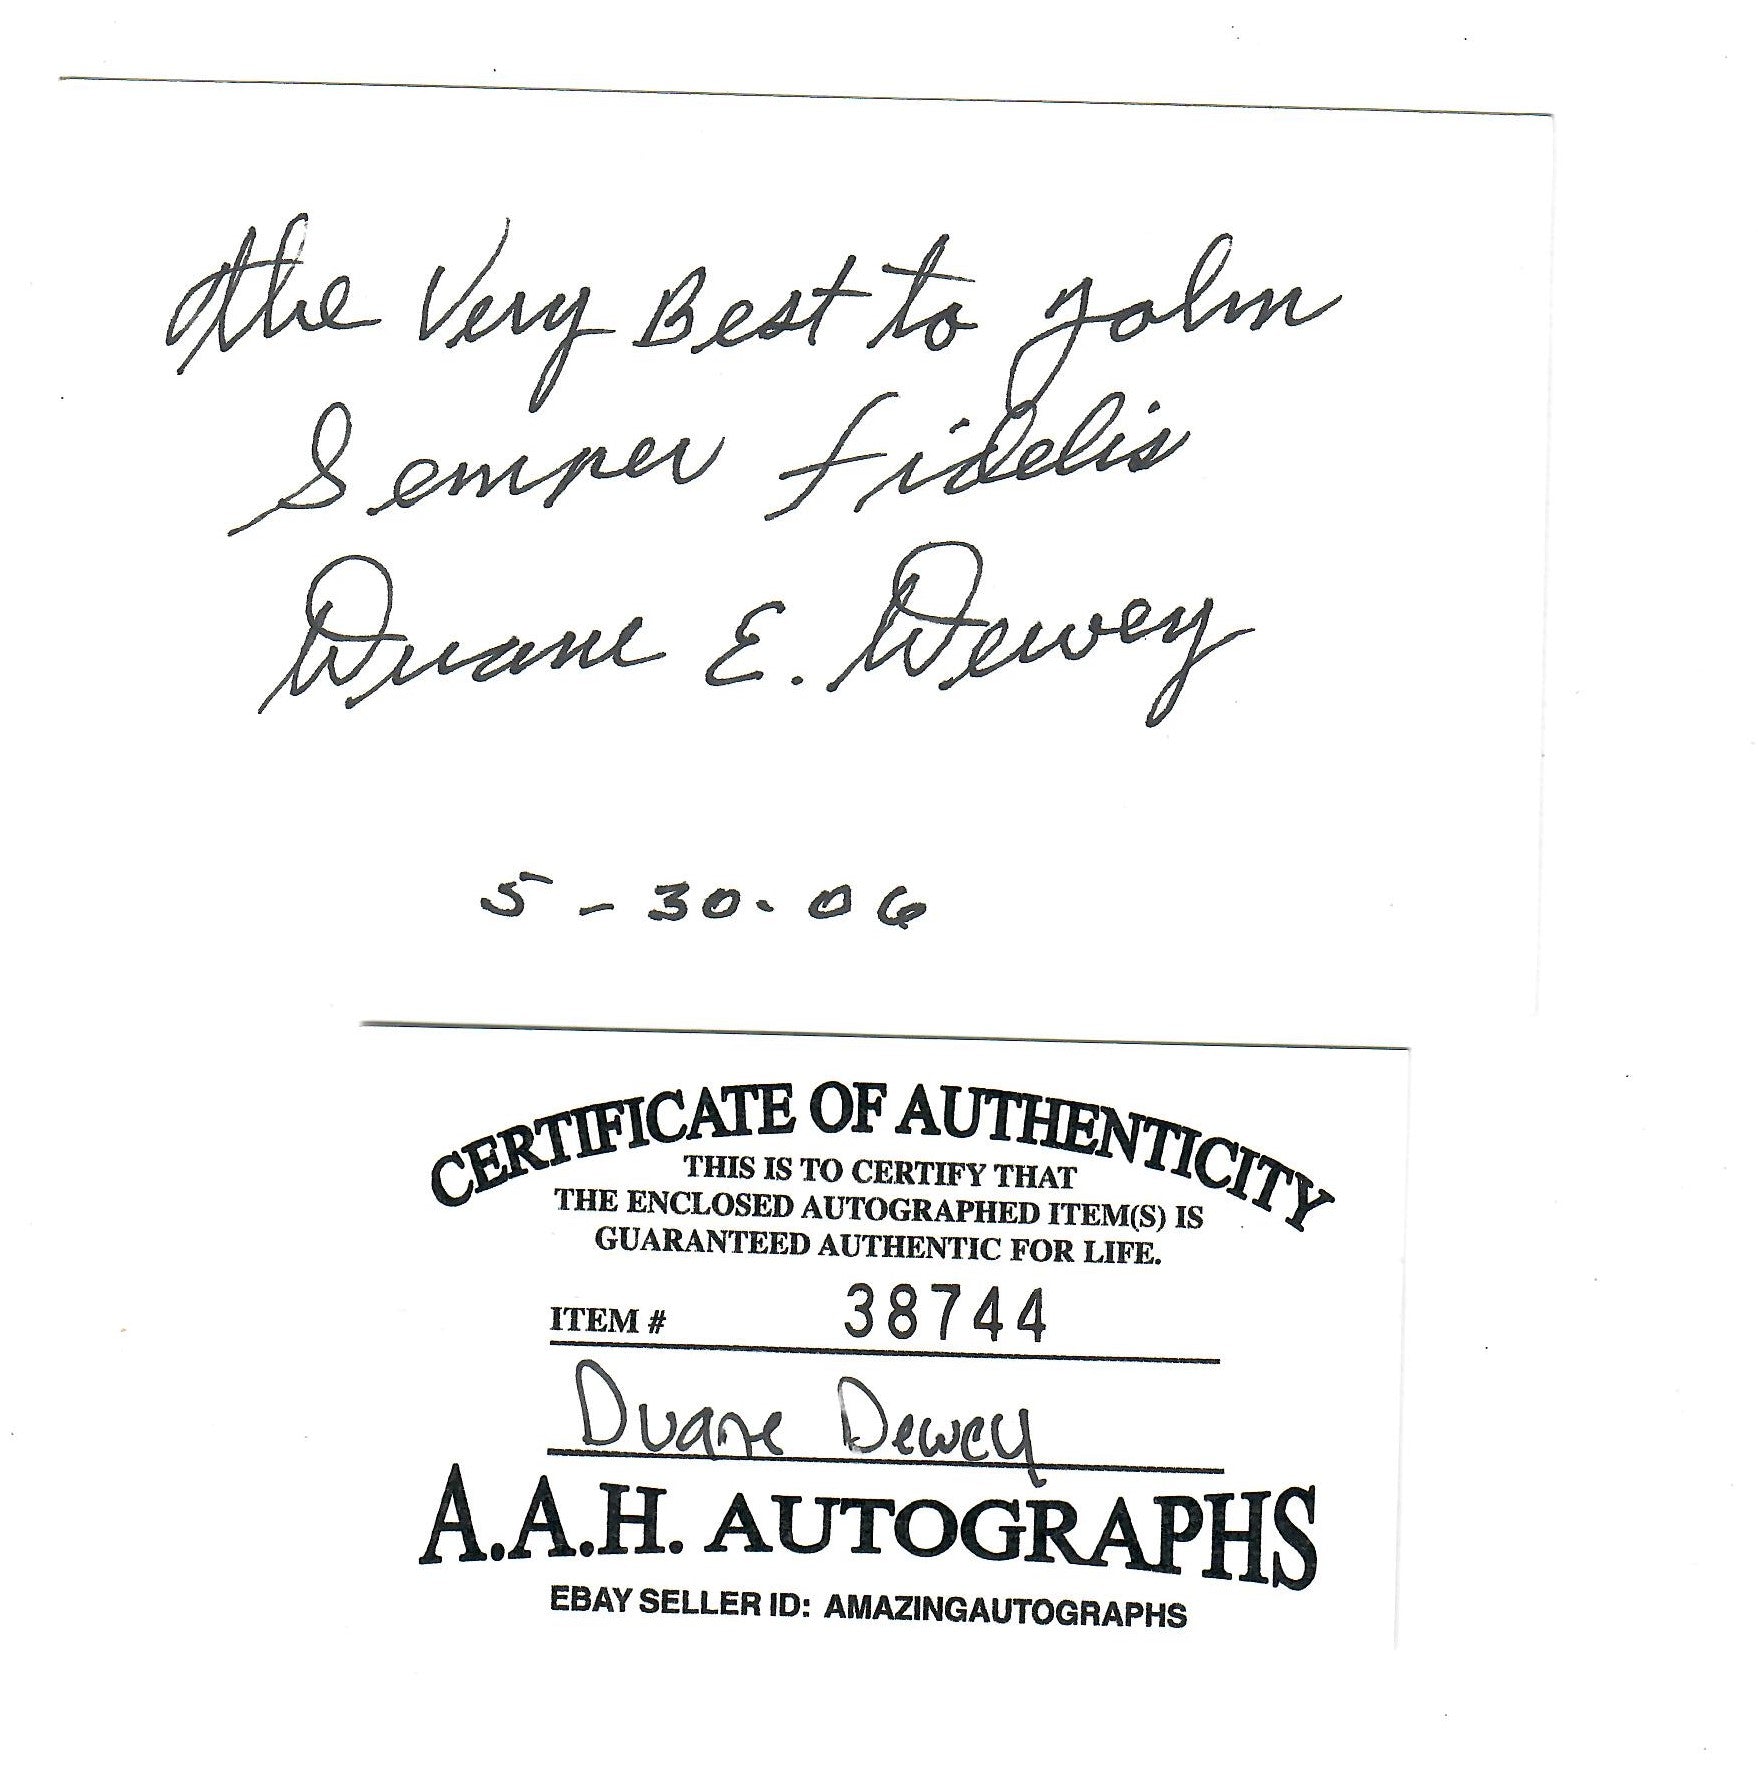 the Very Best to John
Semper Fidelis
Duane E. Dewey
5-30-06
CERTIFICATE OF AUTHENTICITY
THIS IS TO CERTIFY THAT
THE ENCLOSED AUTOGRAPHED ITEM(S) IS
GUARANTEED AUTHENTIC FOR LIFE.
ITEM # 38744
Duane Dewey
A.A.H. AUTOGRAPHS
EBAY SELLER ID: AMAZINGAUTOGRAPHS